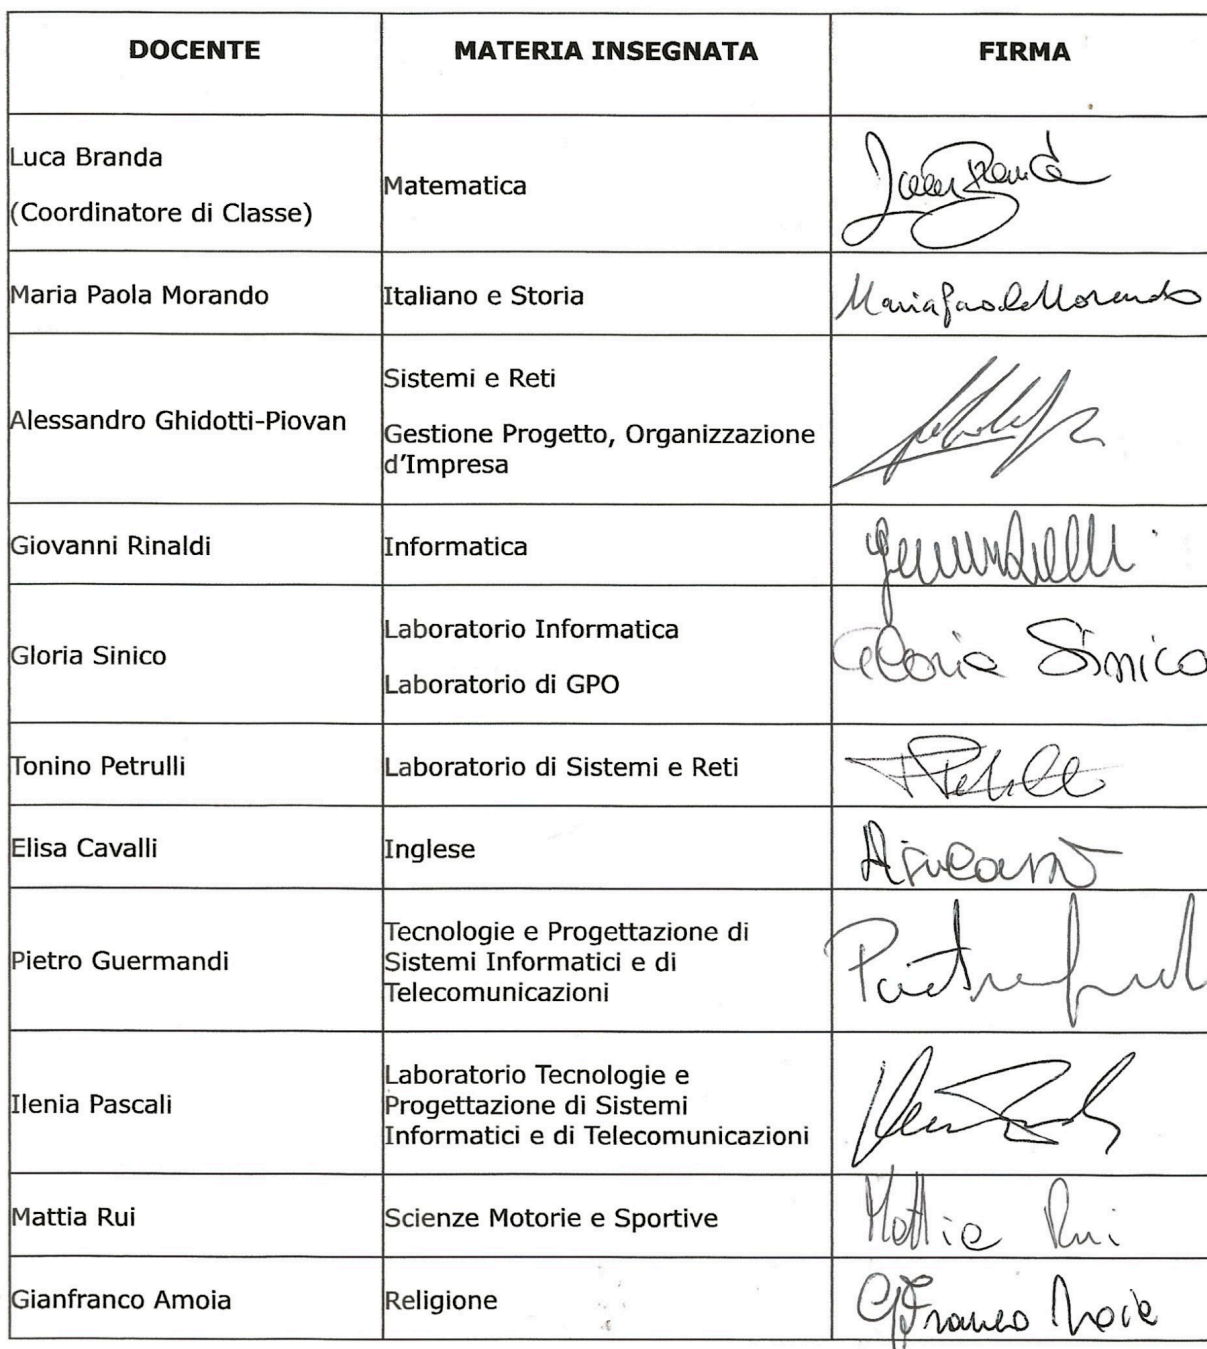 DOCENTE MATERIA INSEGNATA FIRMA
Luca Branda
(Coordinatore di Classe)
Matematica
Maria Paola Morando
Italiano e Storia
Maria Paola Morando
Alessandro Ghidotti-Piovan
Sistemi e Reti
Gestione Progetto, Organizzazione
d'Impresa
Giovanni Rinaldi
Informatica
Gloria Sinico
Laboratorio Informatica
Laboratorio di GPO
Gloria Sinico
Tonino Petrulli
Laboratorio di Sistemi e Reti
Elisa Cavalli
Inglese
Pietro Guermandi
Tecnologie e Progettazione di
Sistemi Informatici e di
Telecomunicazioni
Ilenia Pascali
Laboratorio Tecnologie e
Progettazione di Sistemi
Informatici e di Telecomunicazioni
Mattia Rui
Scienze Motorie e Sportive
Mattia Rui
Gianfranco Amoia
Religione